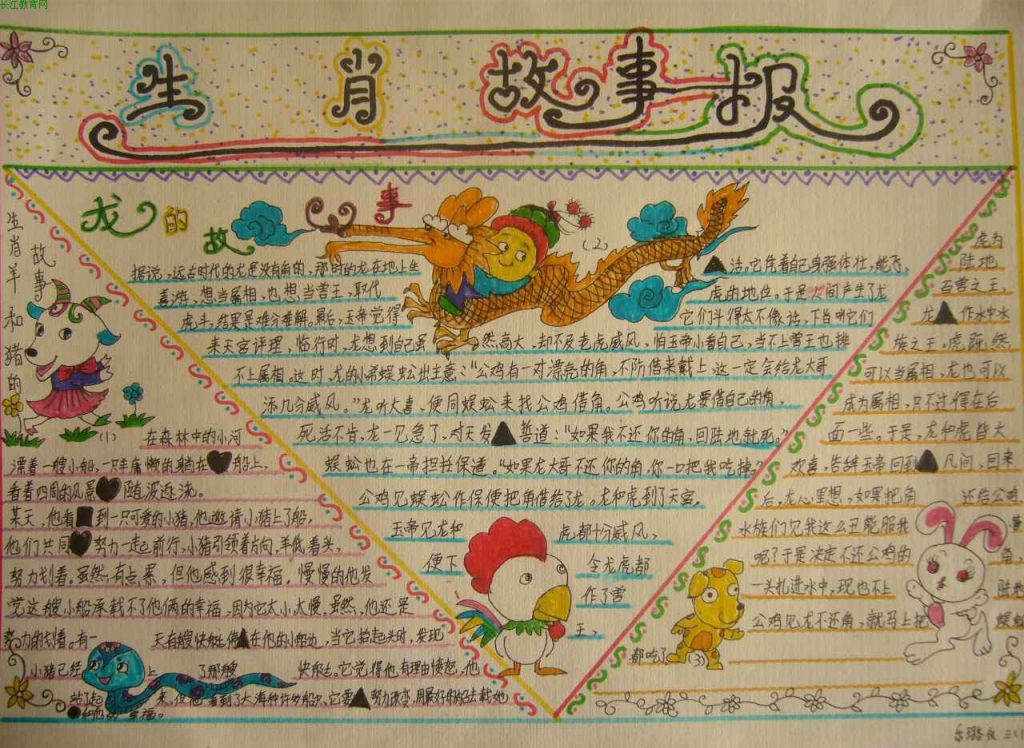 长江教育网
生肖故事报
龙的故事
(2)
据说,远古时代的龙是没有角的,那时的龙在地上生
▲活,它凭着自己身强体壮,能飞,
想当属相,也想当兽王,取代
虎的地位。于是人间产生了龙
虎斗,结果是难分难解。最后,玉帝觉得
它们斗得太不像话,下旨叫它们
来天宫评理,临行时,龙想到自己虽
然高大,却不及老虎威风,怕玉帝小看自己,当不上兽王也排
不上属相。这时,龙的小弟蜈蚣出主意:“公鸡有一对漂亮的角,不防借来戴上,这一定会给龙大哥
添几分威风。”龙听大喜,便同蜈蚣来找公鸡借角。公鸡听说龙要借自己的角,
死活不肯,龙一见急了,对天发▲誓道:“如果我不还你的角,回陆地就死。”
蜈蚣也在一帝担担保道,“如果龙大哥不还你的角,你一口把我吃掉”
公鸡见蜈蚣作保便把角借给了龙。龙和虎到了天宫,
玉帝见龙和
虎都十分威风,
便下
令龙虎都
作了兽
王,
生肖羊和猪的故事
(1)
在森林中的小河
漂着一艘小船,一只羊慵懒的躺在♥船上,
看着四周的风景♥随波逐流。
某天,他看■到一只可爱的小猪,他邀请小猪上了船,
他们共同♥努力一起前行,小猪引领着方向,羊低着头,
努力划着,虽然有点累,但他感到很幸福,慢慢的他发
觉这艘小船承载不了他俩的幸福,因为它太小太慢,虽然,他还是
努力的划着。有一
天有艘快船停▲在他的小船边,当它抬起头时,发现
小猪已经
上
了那艘
快船,它觉得他有理由愤怒,他
站了起
来,但他看到了大海种许多船只,它要▲努力改变,用最好的船去载她
●和他的幸福。
虎为
陆地
百兽之王,
龙▲作水中水
族之王。虎既然
可以当属相,龙也可以
成为属相,只不过信在后
面一些。于是,龙和虎皆大
欢喜,告辞玉帝回到▲凡间,回来
后,龙心里想,如果把角
还给公鸡
水族们见我这么丑能服我
呢?于是决定不还公鸡的
角,
一头扎进水中,现也不上
陆地
公鸡见龙不还角,就马上把
蜈蚣
都吃了
(3)